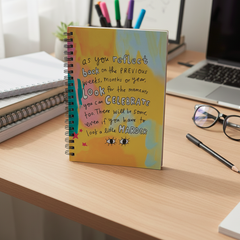 as you reflect
back on the previous
weeks, months or year,
LOOK for the moments
you can CELEBRATE
too. There will be some
even if you have to
look a little HARDER